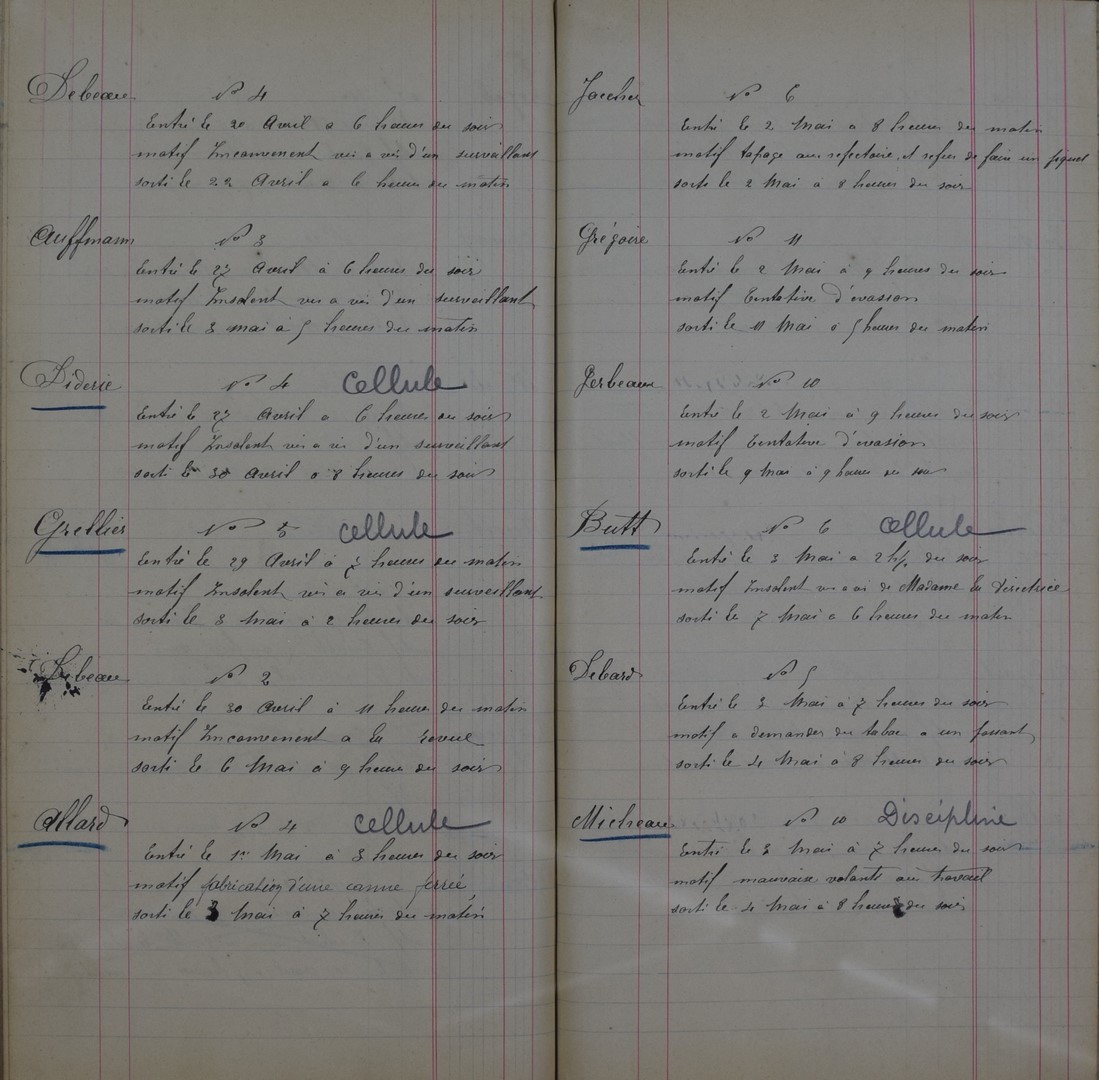 Debeau N° 4
Entré le 20 Avril a 6 heures du soir
motif Inconvenent vis a vis d'un surveillant
sorti le 22 Avril a 6 heures du matin
Auffmann N° 3
Entré le 27 Avril à 6 heures du soir
motif Insolent vis a vis d'un surveillant
sorti le 3 mai à 5 heures du matin
Diderie N° 4 Cellule
Entré le 27 Avril a 6 heures du soir
motif Insolent vis a vis d'un surveillant
sorti le 30 Avril a 8 heures du soir
Grellier N° 5 cellule
Entré le 29 Avril à 7 heures du matin
motif Insolent vis a vis d'un surveillant
sorti le 3 Mai à 2 heures du soir
Debeau N° 2
Entré le 30 Avril à 11 heures du matin
motif Inconvenent a la revue
sorti le 6 Mai à 9 heures du soir
Allard N° 4 cellule
Entré le 1er Mai à 3 heures du soir
motif fabrication d'une canne ferrée
sorti le 3 Mai à 7 heures du matin
N° 6
Entré le 2 Mai a 8 heures du matin
motif tapage au refectoire et refus de faire un piquet
sorti le 2 Mai à 8 heures du soir
Grégoire N° 11
Entré le 2 Mai à 9 heures du soir
motif Tentative d'évasion
sorti le 11 Mai à 5 heures du matin
Gerbeaux N° 10
Entré le 2 Mai à 9 heures du soir
motif Tentative d'évasion
sorti le 9 Mai à 9 heures du soir
Butt N° 6 cellule
Entré le 3 Mai a 2 h ½ du soir
motif Insolent vis a vis de Madame la Directrice
sorti le 7 Mai a 6 heures du matin
Debard N° 5
Entré le 3 Mai à 7 heures du soir
motif a demander du tabac a un passant
sorti le 4 Mai à 8 heures du soir
Micheau N° 10 Discipline
Entré le 3 Mai à 7 heures du soir
motif mauvaise volonté au travail
sorti le 4 Mai à 8 heures du soir